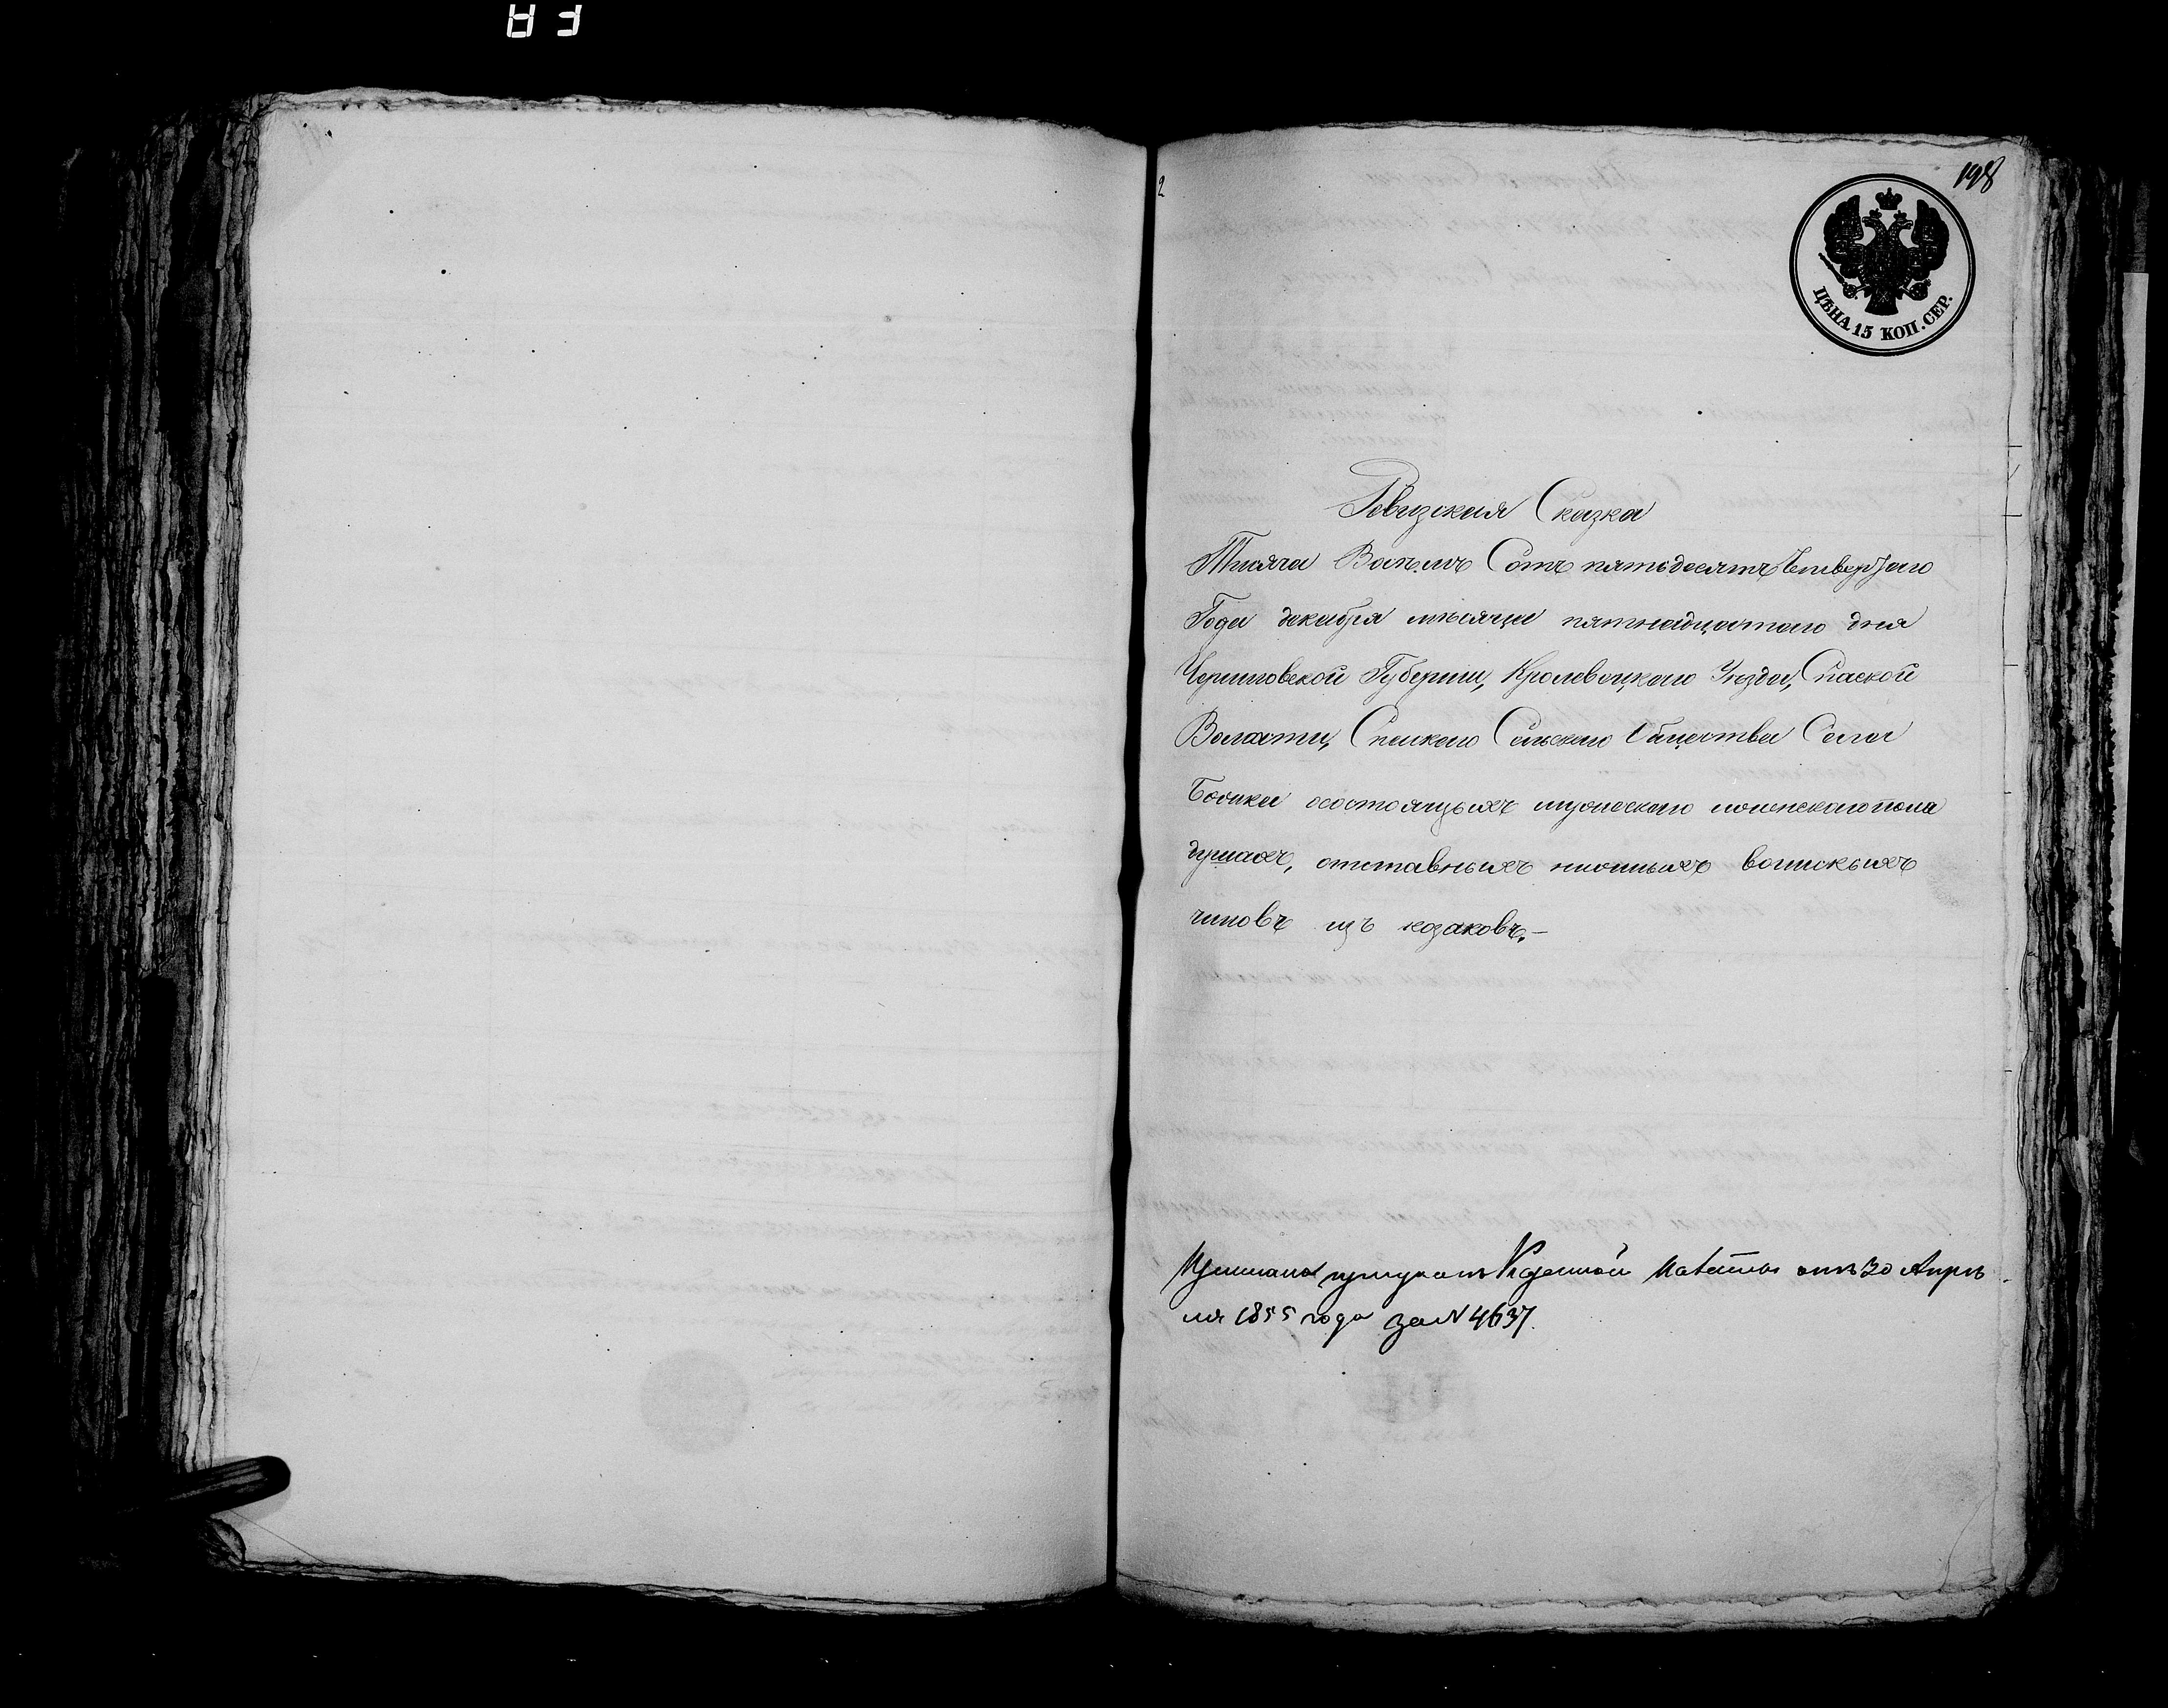 198
ЦѢНА 15 КОП. СЕР.
2
Ревизская Сказка
Тысяча Восемь Сотъ пятьдесятъ Четвертаго
Года декабря мѣсяца пятнадцатаго дня
Черниговской Губернии, Кролевецкаго Уезда, Спаской
Волости, Спаскаго Сельскаго Общества Села
осостоящыхъ мужескаго иженскаго пола
душахъ, отставныхъ нижныхъ воинскыхъ
чиновъ изъ козаковъ.—
Казенной Палаты отъ 30 Апрѣ
ля 1855 года за N 4637.